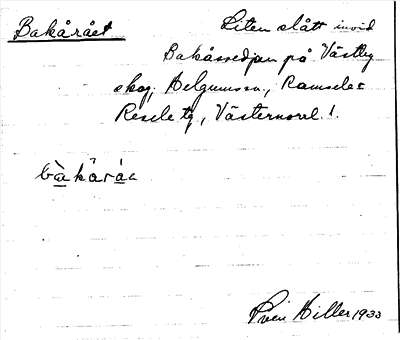 Bakårået
Liten slått invid
Bakåssedjan på Västby
skog, Helgumssn, Ramsele o
Resele tg, Västernorrl. l.
bàkår
Sven Hiller 1933